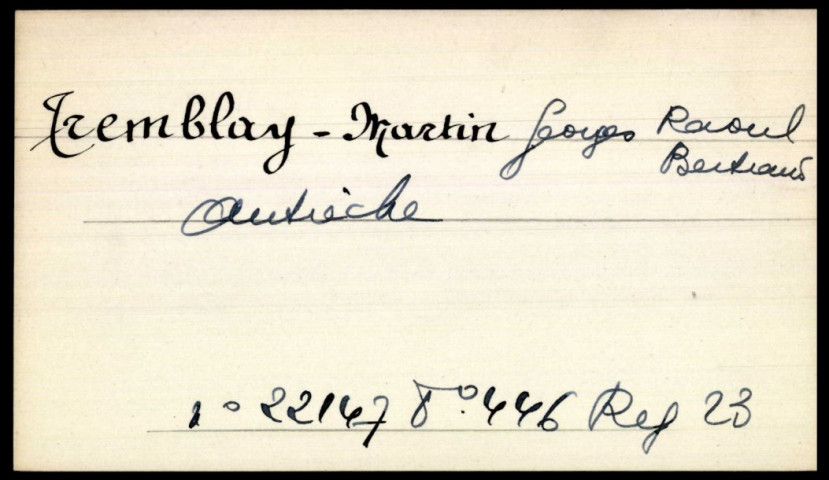 Tremblay - Martin Georges Raoul
Bertrand
Antioche
no 22147 Fo. 446 Reg 23